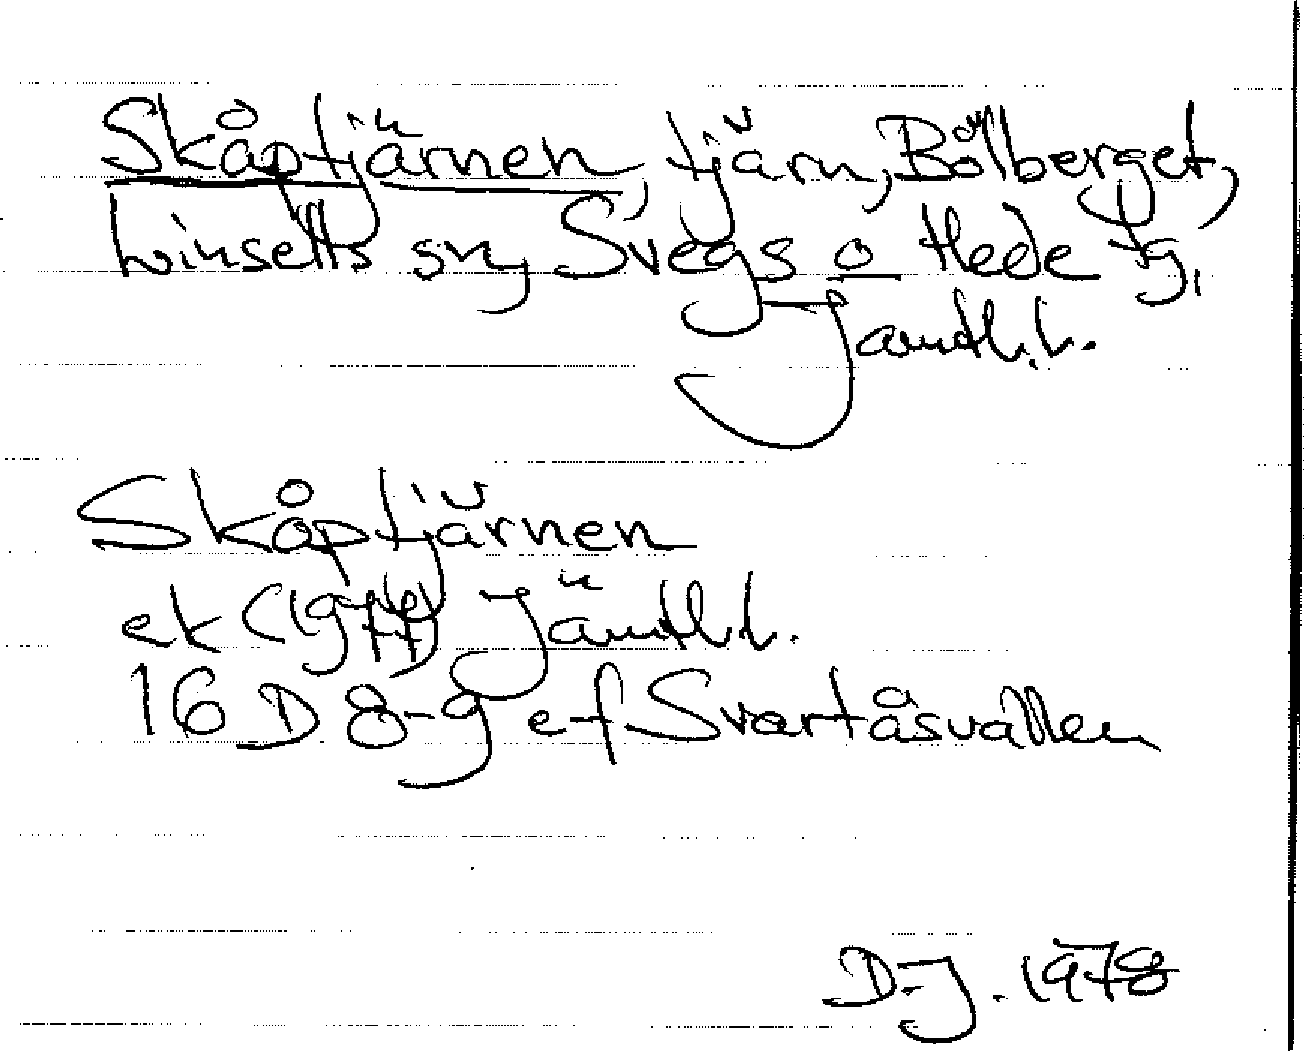 Skåptjärnen, tjärn, Bölberget,
Linsells sn, Svegs o Hede tg,
Jämtl.l.
Skåptjärnen
ek (1977) Jämtl.l.
16 D 8-9 e-f Svartåsvallen
D-J. 1978